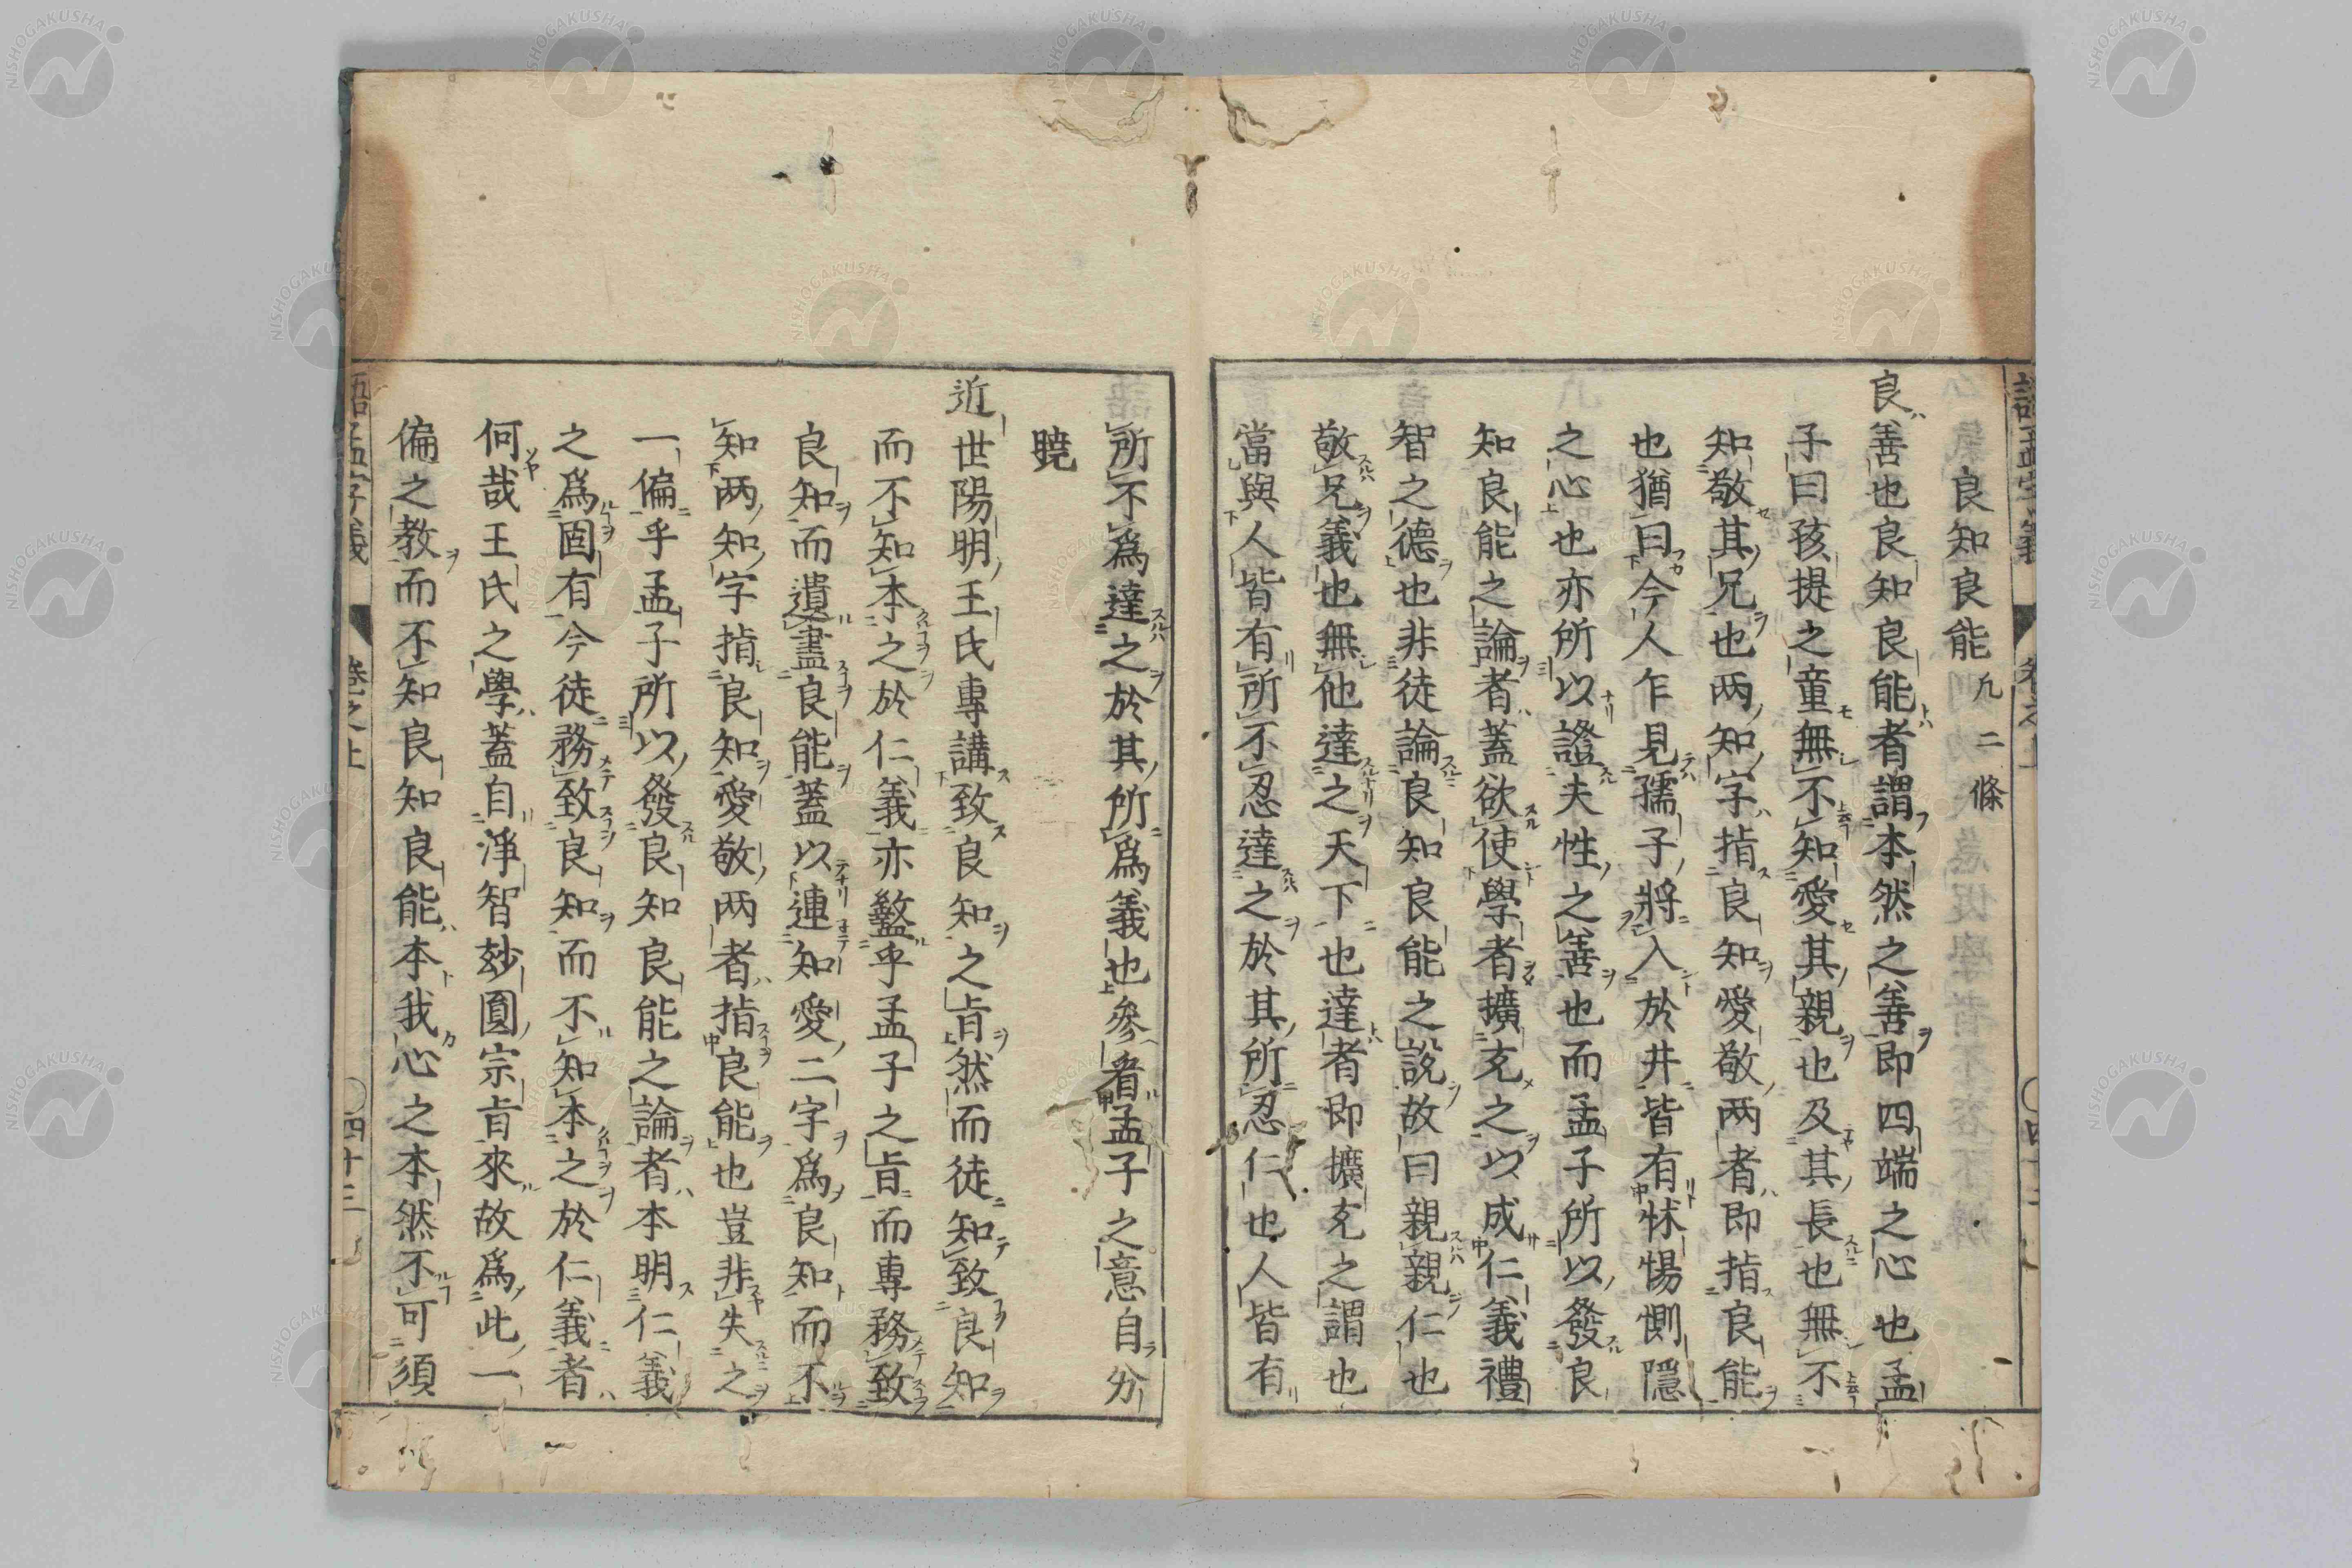 良知良能 凢二條
良善也良知良能者謂本然之善即四端之心也孟
子曰孩提之童無不知愛其親也及其長也無不
知敬其兄也两知字指良知愛敬两者即指良能
也猶曰今人乍見孺子將入於井皆有怵惕惻隱
之心也亦所以證夫性之善也而孟子所以發良
知良能之論者蓋欲使學者擴充之以成仁義禮
智之德也非徒論良知良能之說故曰親親仁也
敬兄義也無他達之天下也達者即擴充之謂也
當與人皆有所不忍達之於其所忍仁也人皆有
所不爲達之於其所爲義也參看孟子之意自分
曉
近世陽明王氏專講致良知之㫖然而徒知致良知
而不知本之於仁義亦盭乎孟子之㫖而專務致
良知而遺盡良能蓋以連知愛二字爲良知而不
知两知字指良知愛敬两者指良能也豈非失之
一偏乎孟子所以發良知良能之論者本明仁義
之爲固有今徒務致良知而不知本之於仁義者
何哉王氏之學蓋自淨智玅圓宗㫖來故爲此一
偏之教而不知良知良能本我心之本然不可須
語孟字義 卷之上 四十三